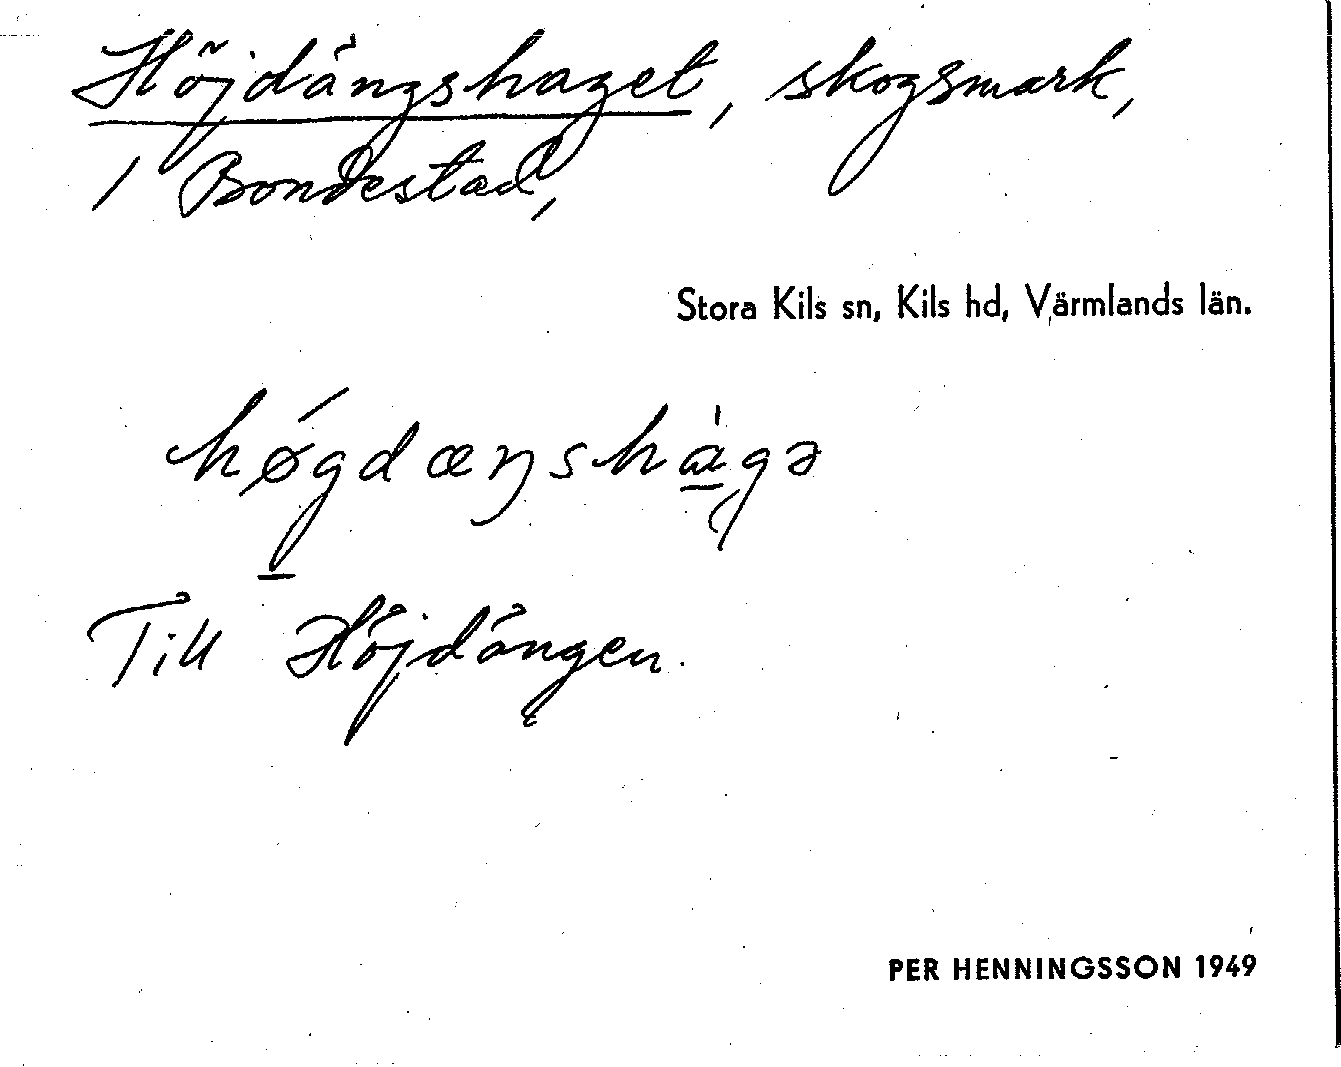 Höjdängshaget, skogsmark,
/ Bondestad,
Stora Kils sn, Kils hd, Värmlands län.
høgdæŋshàgə
Till Höjdängen.
PER HENNINGSSON 1949